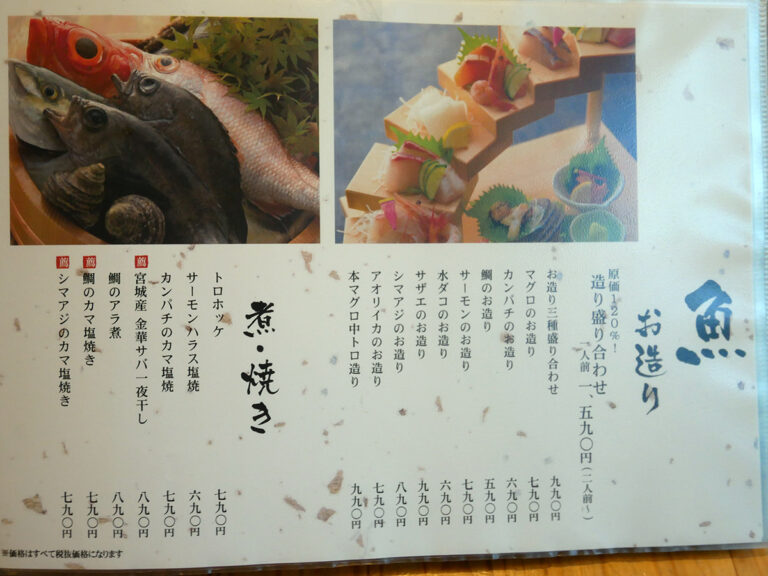 魚
お造り
原価120%!
造り盛り合わせ
一人前 一、五九〇円(二人前~)
お造り三種盛り合わせ 九九〇円
マグロのお造り 七九〇円
カンパチのお造り 六九〇円
鯛のお造り 五九〇円
サーモンのお造り 七九〇円
水ダコのお造り 六九〇円
サザエのお造り 九九〇円
シマアジのお造り 八九〇円
アオリイカのお造り 七九〇円
本マグロ中トロ造り 九九〇円
煮・焼き
トロホッケ 七九〇円
サーモンハラス塩焼 六九〇円
カンパチのカマ塩焼 七九〇円
薦 宮城産 金華サバ一夜干し 八九〇円
鯛のアラ煮 八九〇円
薦 鯛のカマ塩焼き 七九〇円
薦 シマアジのカマ塩焼き 七九〇円
※価格はすべて税抜価格になります